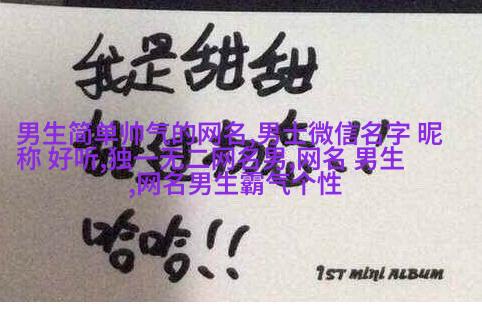 我是甜甜
男生简单帅气的网名,男士微信名字 昵
称 好听,独一无二网名男,网名 男生
,网名男生霸气个性
哈哈!!
1ST MINI ALBUM